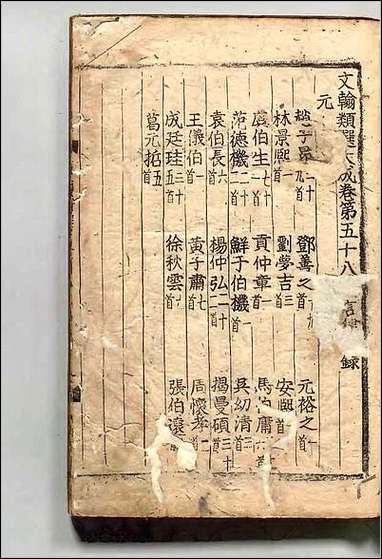 文翰類選大成卷第五十八 言律 錄
元
趙子昂二十九首 鄧善之一首 元裕之一首
林景熙一首 劉夢吉三首 安熙一首
虞伯生十一首 貢仲章一首 馬伯庸六首
范德機二十一首 鮮于伯機一首 吳幼清三首
袁伯長六首 楊仲弘二十首 揭曼碩三十首
王儀伯一首 黃子肅七首 周懷孝一首
成廷珪三十五首 徐秋雲首 張伯遠
葛元喆五首